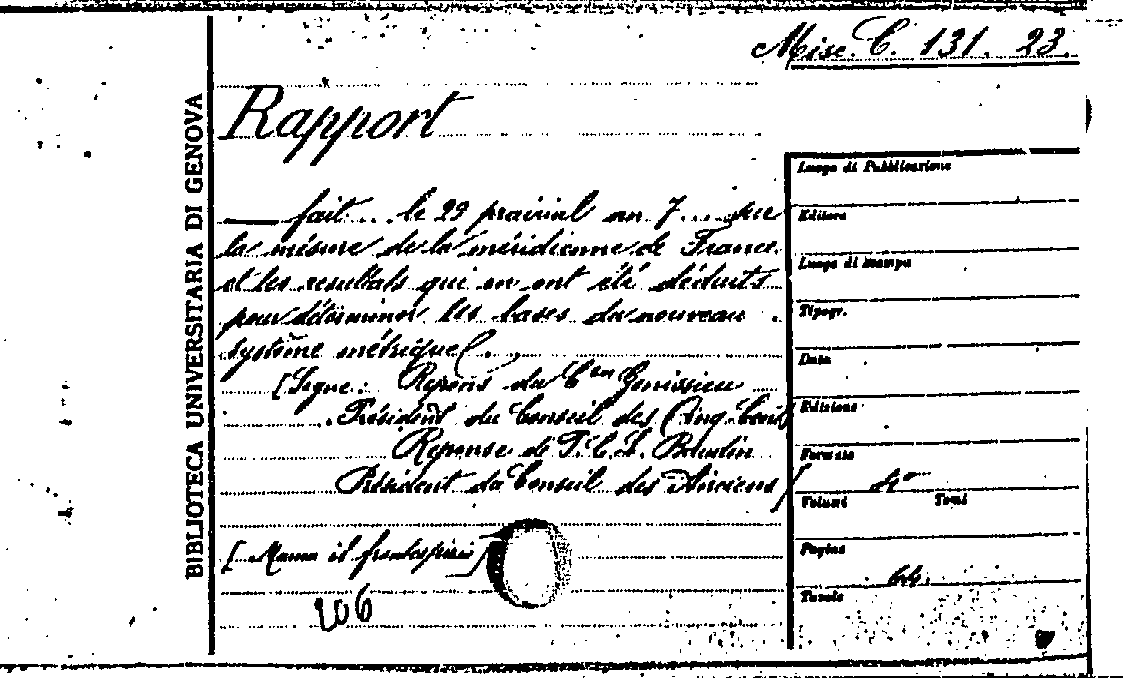 Misc. C. 131. 23.
BIBLIOTECA UNIVERSITARIA DI GENOVA
Rapport
— fait .. le 29 prairial an 7 ... sur
la mésure de la méridienne de France
et les resultats qui en ont été déduits
pour déterminer les bases du nouveau
système métrique.
[Segue: Repons du C.en Genissieu
Président du Conseil des Cinq. Cents
Reponse de P. C. L. Baudin
Président du Conseil des Anciens]
[Manca il frontespizio]
206
Luogo di Pubblicazione
Editore
Luogo di stampa
Tipogr.
Data
Edizione
Formato
4°
Volumi Tomi
Pagine
44.
Tavole